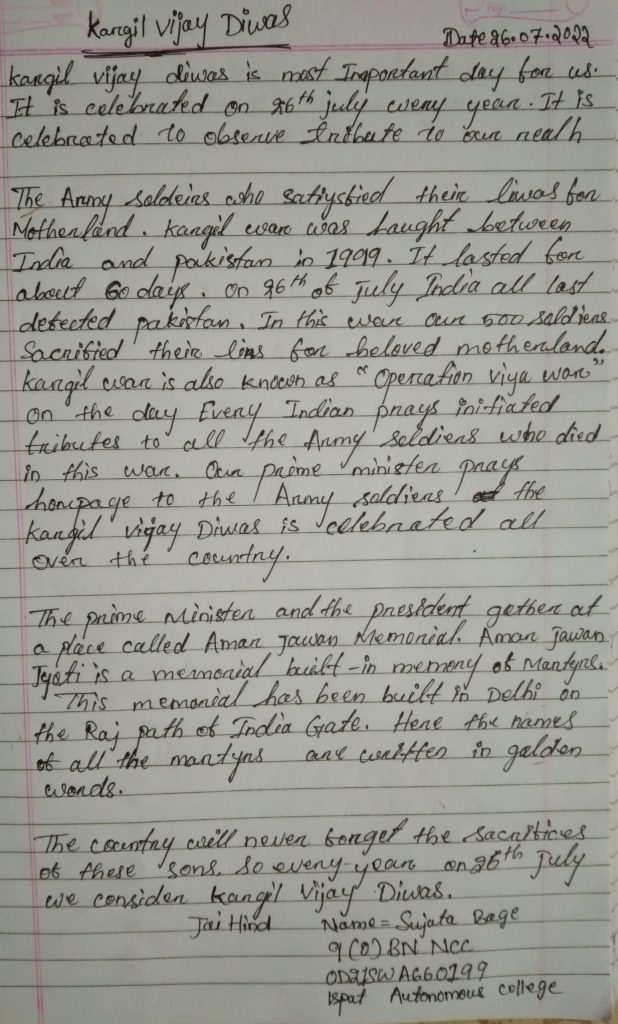 Kargil Vijay Diwas
Date 26.07.2022
Kargil vijay diwas is most Imporntant day for us.
It is celebrated on 26th july every year. It is
celebrated to observe tribute to our realh
The Army soldeirs who satiysfied their liwas for
Motherland. Kargil warr was faught between
India and pakistan in 1999. It lasted for
about 60 days. on 26th of July India all last
defected pakistan. In this war our 500 soldiers
Sacrified their lins for beloved motherland.
Kargil war is also known as "Operation viya war"
on the day Every Indian prays initiated
tributes to all the Army soldiers who died
in this war. Our prime minister prays
hompage to the Army soldiers the
Kargil vijay Diwas is celebrated all
over the country.
The prime Minister and the president gether at
a place called Amar Jawan Memorial. Amar Jawan
Jyoti is a memorial built-in memory of Martyrs.
This memorial has been built in Delhi on
the Raj path of India Gate. Here the names
of all the martyrs are written in golden
words.
The country will never forget the sacrifices
of these sons. so every-year on 26th July
we consider Kargil Vijay Diwas.
Jai Hind
Name = Sujata Bage
9 (O) BN NCC
OD21SWA660199
Ispat Autonomous college